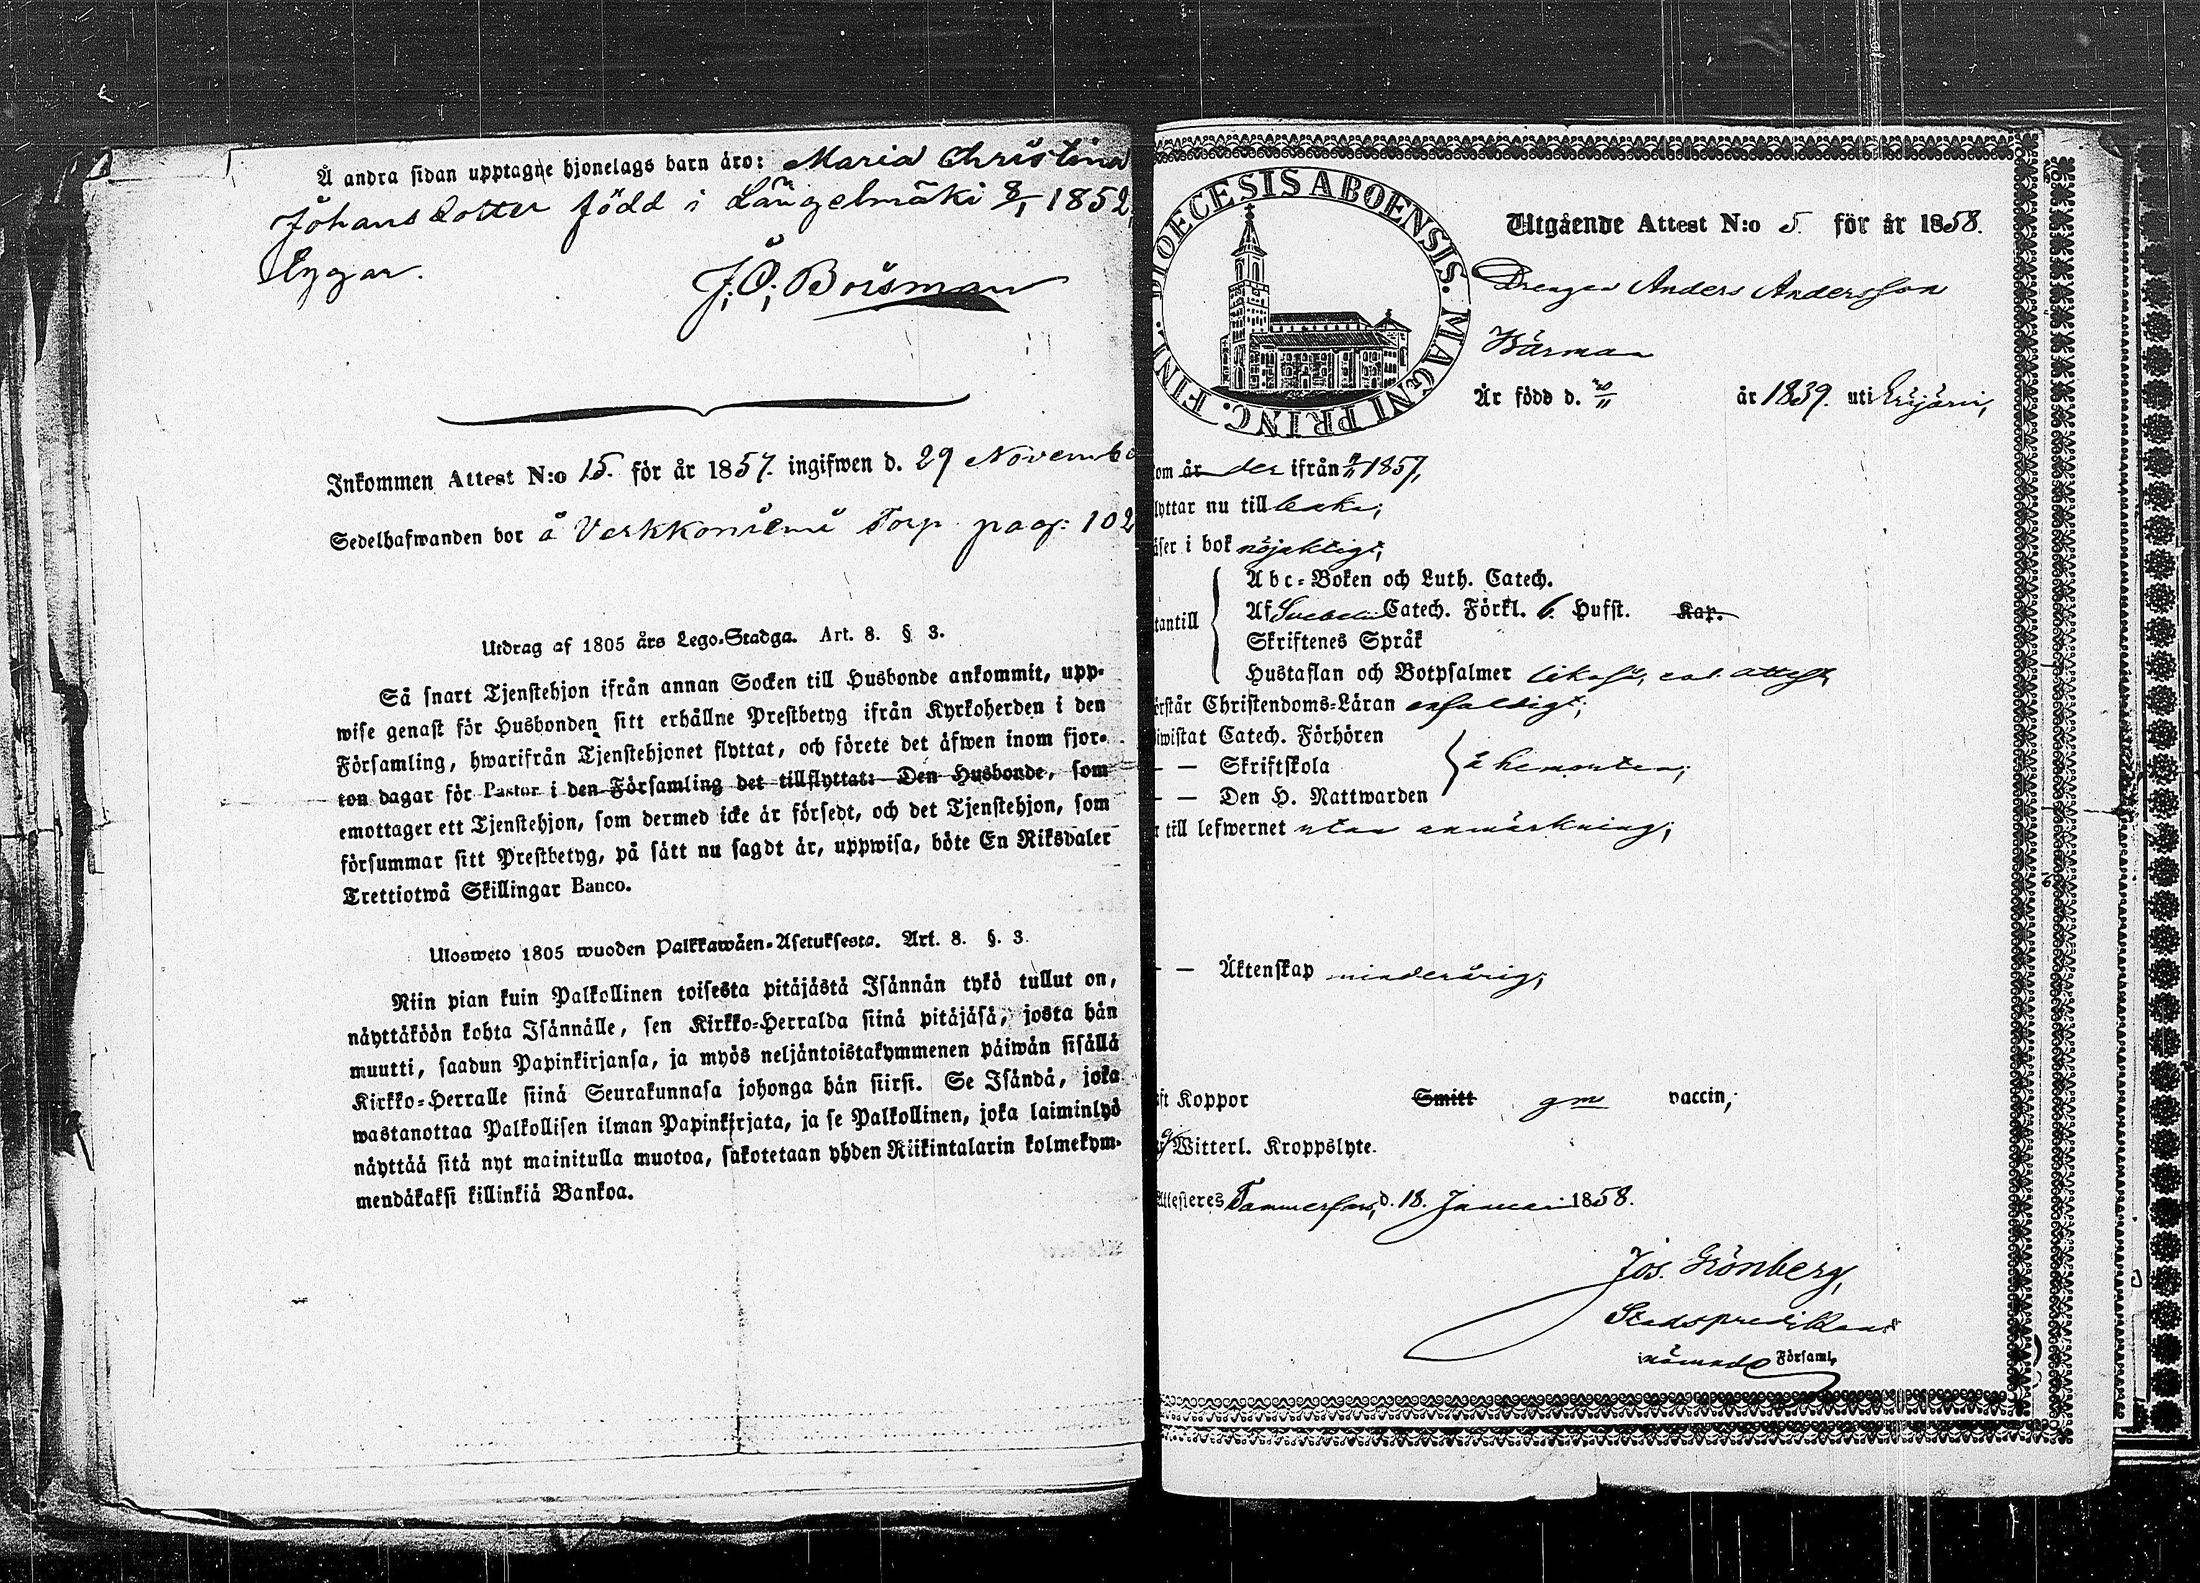 Å andra sidan upptagne hjonelags barn äro: Maria Christina
Johansdotter född i Längelmäki 8/1 1852,
äger.
J. O. Boisman
Inkommen Attest N:o 15. för år 1857. ingifwen d. 29 Novembe
Sedelhafwanden bor å Verkkoniemi Torp pag: 102
Utdrag af 1805 års Lego-Stadga. Art. 8. § 3.
Så snart Tjenstehjon ifrån annan Socken till Husbonde ankommit, upp-
wise genast för Husbonden sitt erhållne Prestbetyg ifrån Kyrkoherden i den
Församling, hwarifrån Tjenstehjonet flyttat, och förete det äfwen inom fjor-
ton dagar för Pastor i den Församling det tillflyttat: Den Husbonde, som
emottager ett Tjenstehjon, som dermed icke är försedt, och det Tjenstehjon, som
försummar sitt Prestbetyg, på sätt nu sagdt är, uppwisa, böte En Riksdaler
Trettiotwå Skillingar Banco.
Ulosweto 1805 wuoden Palkkawäen-Asetuksesta. Art. 8. §. 3.
Niin pian kuin Palkollinen toisesta pitäjästä Isännän tykö tullut on,
näyttäköön kohta Isännälle, sen Kirkko-Herralda siinä pitäjäsä, josta hän
muutti, saadun Papinkirjansa, ja myös neljäntoistakymmenen päiwän sisällä
Kirkko-Herralle siinä Seurakunnasa johonga hän siirsi. Se Isändä, joka
wastanottaa Palkollisen ilman Papinkirjata, ja se Palkollinen, joka laiminlyö
näyttää sitä nyt mainitulla muotoa, sakotetaan yhden Riikintalarin kolmekym-
mendäkaksi killinkiä Bankoa.
DIOECESIS ABOENSIS. MAGNI PRINC. FINL.
Utgående Attest N:o 5. för år 1858.
Drengen Anders Andersson
Wärman
Är född d. 20/11 år 1839. uti Eräjärvi,
om år der ifrån 1857,
lyttar nu till baka;
äser i bok nöjaktigt,
tantill
Abc-Boken och Luth. Catech.
Af Svebelii Catech. Förkl. 6. Hufst. Kap.
Skriftenes Språk
Hustaflan och Botpsalmer likaså, enl. attest
örstår Christendoms-Läran enfaldigt;
iwistat Catech. Förhören
— — Skriftskola å hemorten;
— — Den H. Nattwarden
r till lefwernet utan anmärkning;
— — Äktenskap minderårig;
ft Koppor Smitt gm vaccin;
Witterl. Kroppslyte.
Attesteres Tammerfors, d. 18. Januari 1858.
Jos. Grönberg,
Stadspredikant
i nämnde Församl.